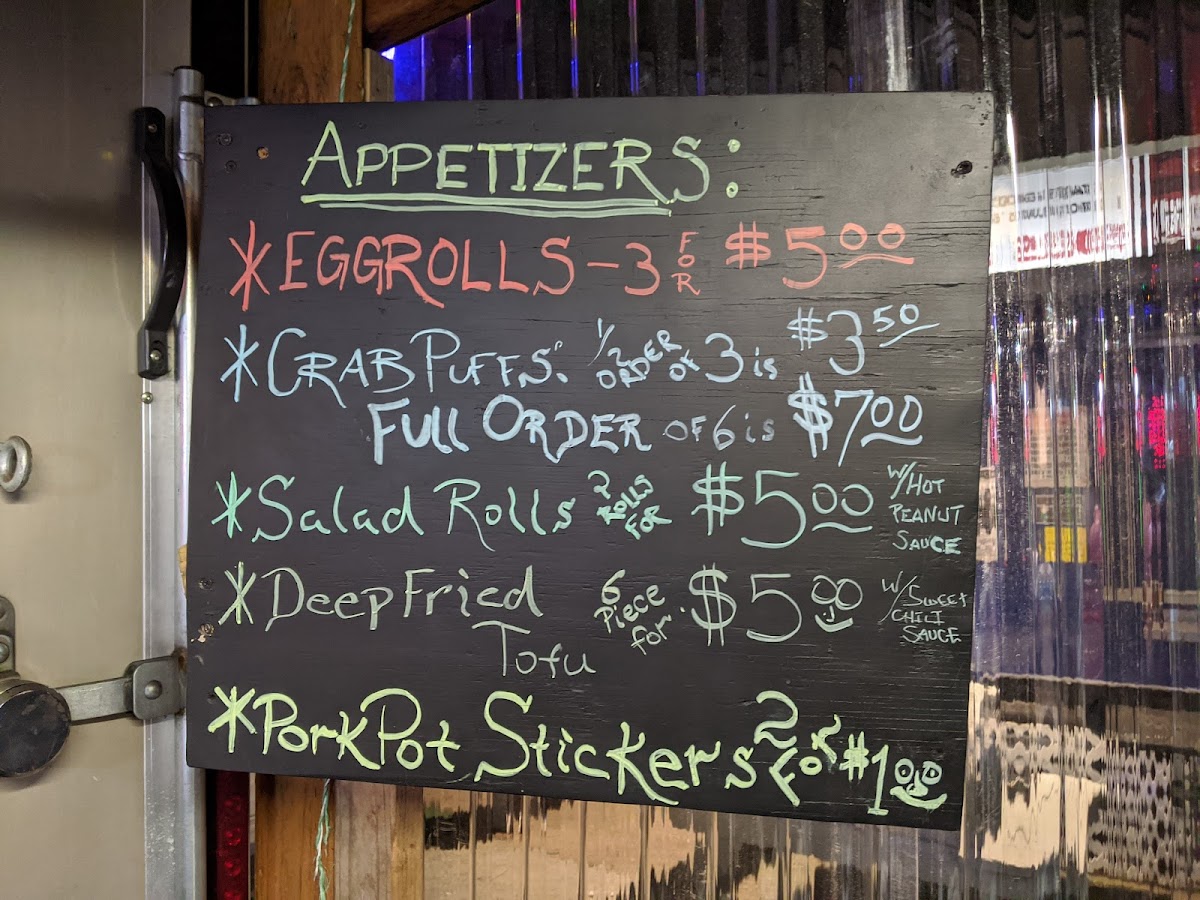 APPETIZERS:
*EGGROLLS - 3 FOR $5.00
*CRAB PUFFS: 1/2 ORDER OF 3 is $3.50
FULL ORDER OF 6 is $7.00
*Salad Rolls 2 ROLLS FOR $5.00 W/HOT PEANUT SAUCE
*Deep Fried Tofu 6 Piece for $5.00 W/SWEET CHILI SAUCE
*Pork Pot Stickers 2 FOR $1.00